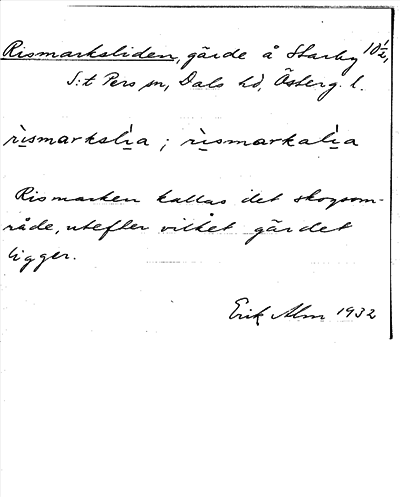 Rismarksliden, gärde å Starby 10 1/2,
S:t Pers sn, Dals hd, Österg. l.
rismarkslia ; rismarkalia
Rismarken kallas det skogsom-
råde, utefter vilket gärdet
ligger.
Erik Alm 1932